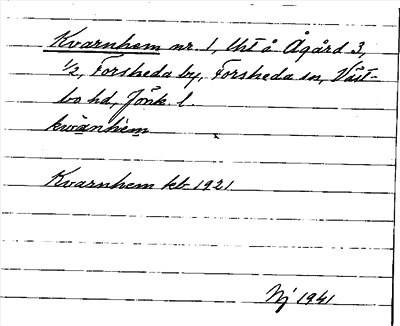 Kvarnhem nr. 1, lht å Ågård 3,
1/2, Forsheda by, Forsheda sn, Väst-
bo hd, Jönk. l.
kwànhèm
Kvarnhem kb 1921
Nj 1941